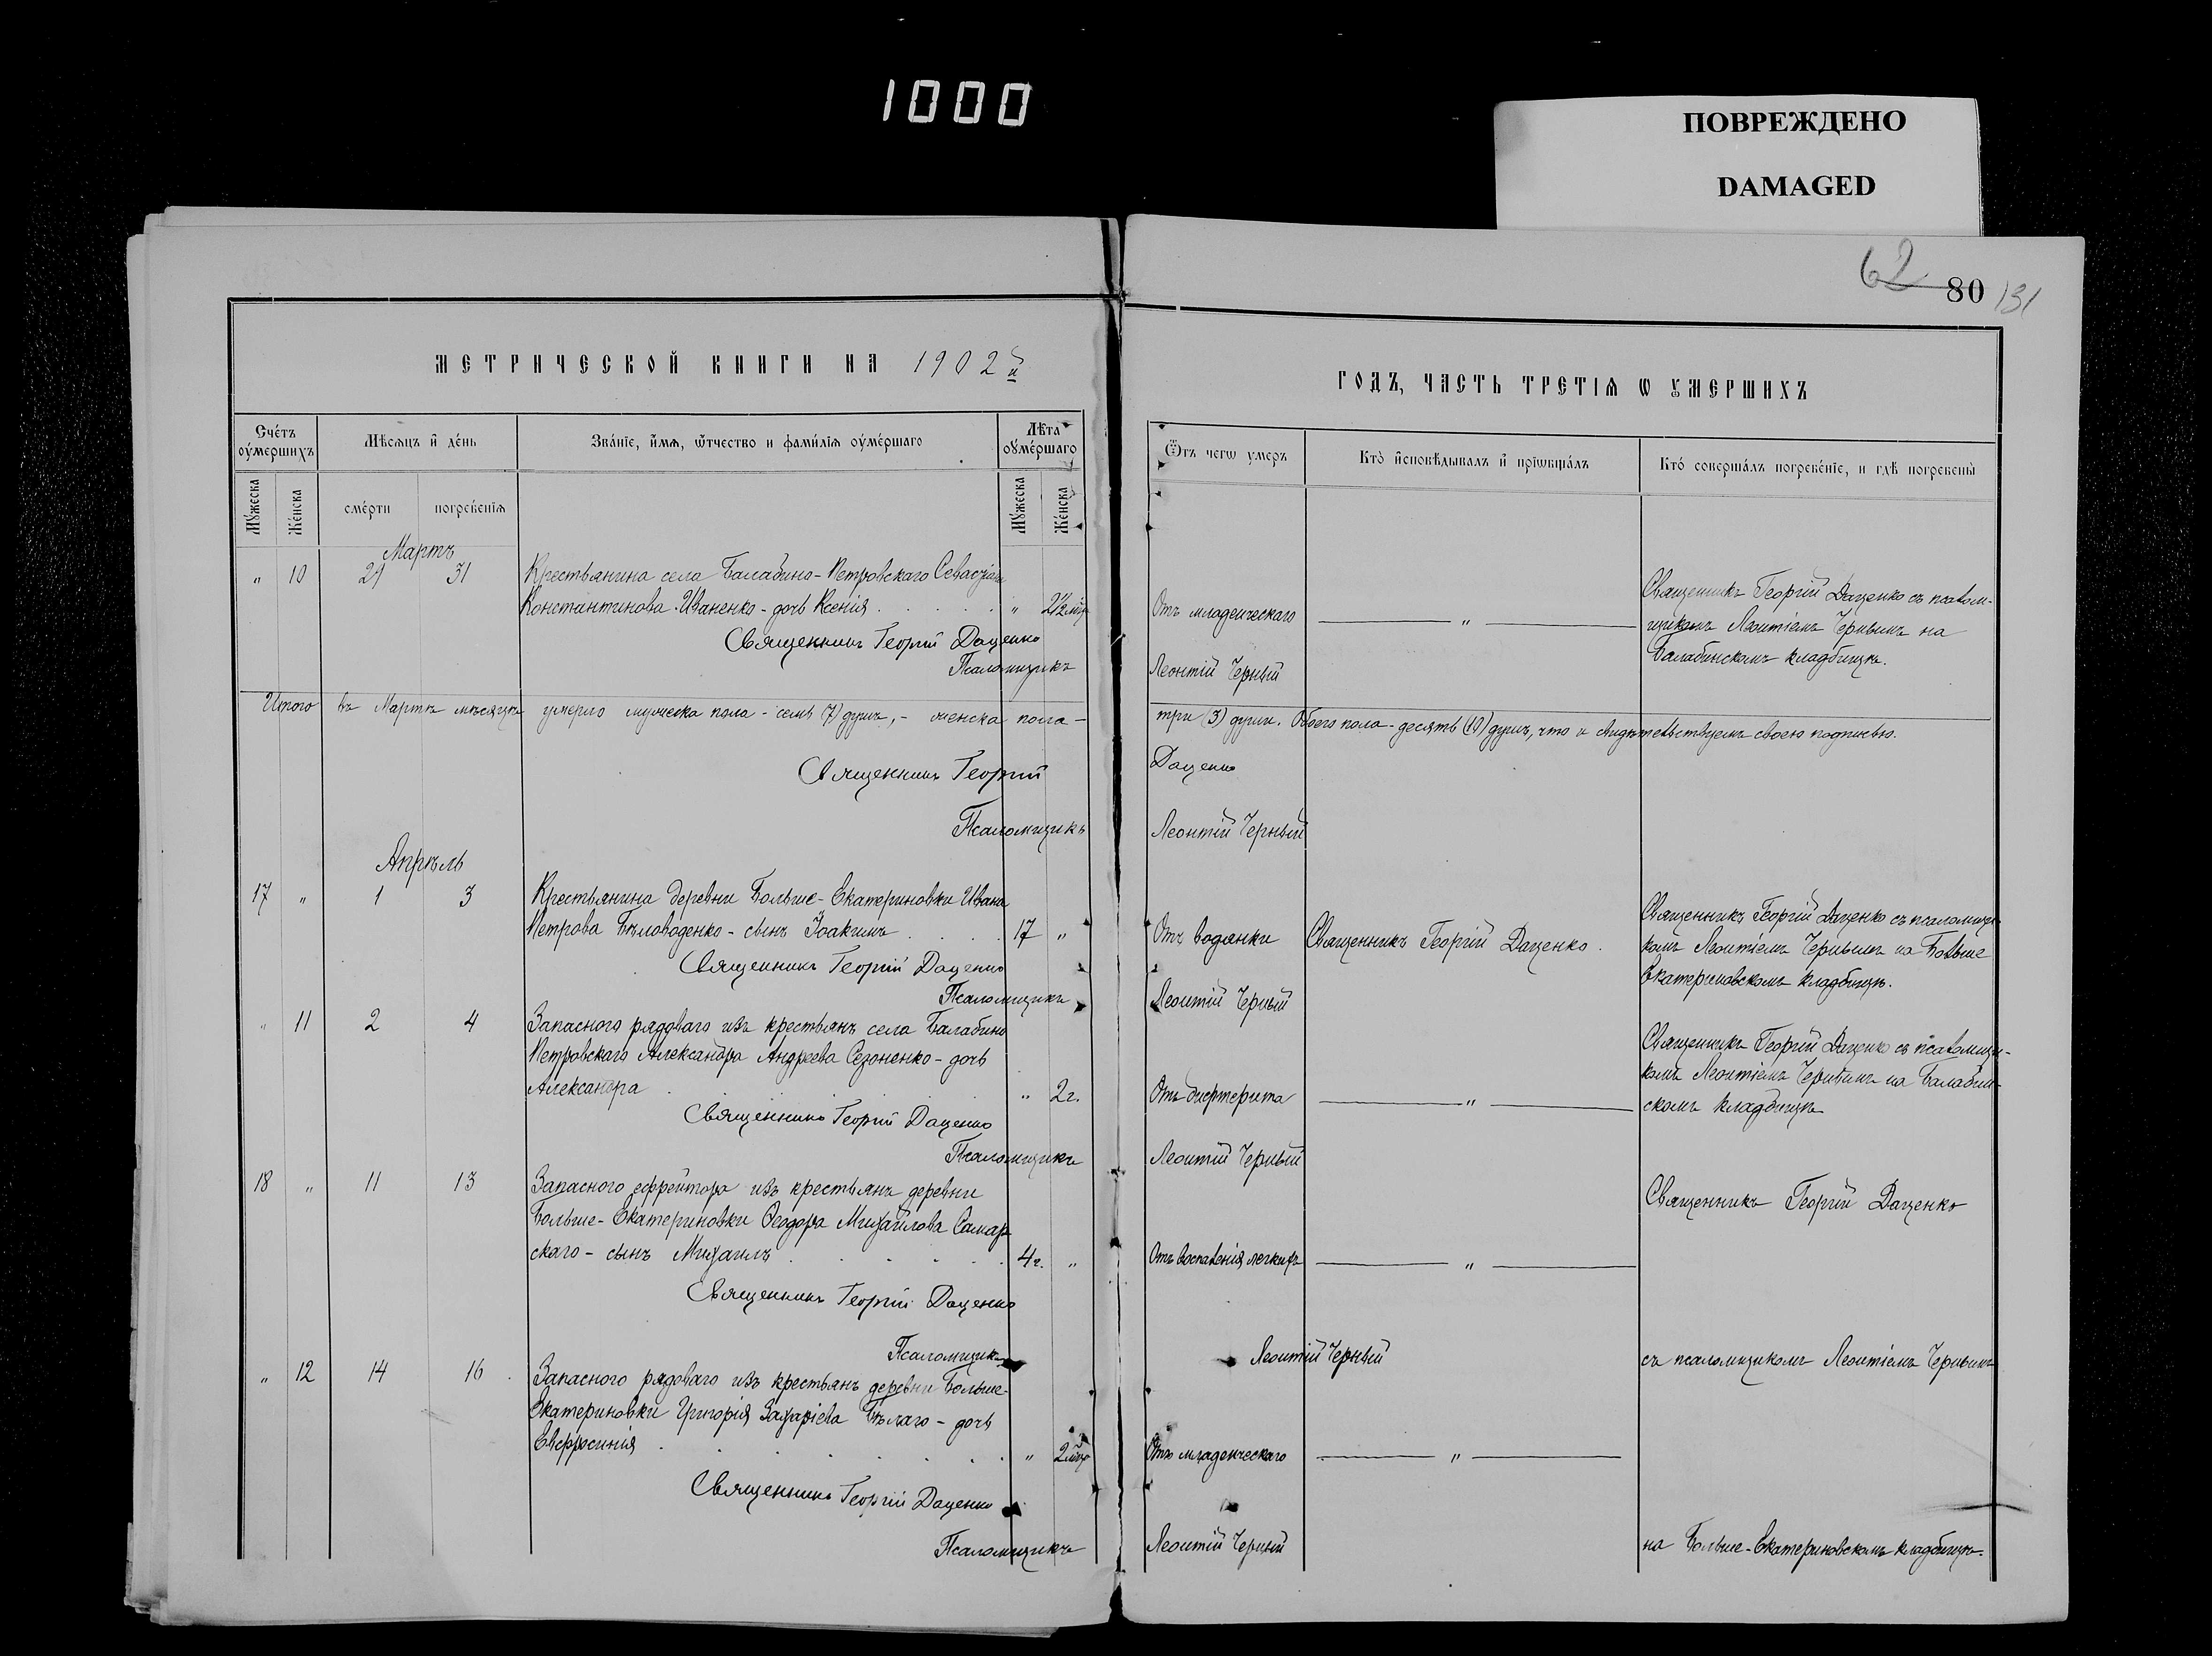 1000
ПОВРЕЖДЕНО
DAMAGED
62
80
131
МЕТРИЧЕСКОЙ КНИГИ НА 1902й
ГОДЪ, ЧАСТЬ ТРЕТІѦ Ѡ ОУМЕРШИХЪ
Счетъ оумершихъ
Мѣсяцъ и день
Званіе, имя, ѿчество и фамилія оумершаго
Лѣта оумершаго
Ѿъ чегѡ умеръ
Кто исповѣдывалъ и прїѡбщалъ
Кто совершалъ погребеніе, и гдѣ погребены
Мужеска
Женска
смерти
погребенія
Мужеска
Женска
Мартъ
" 10 29 31 Крестьянина села Балабино-Петровскаго Севастіана
Константинова Иваненко - дочь Ксенія . . . . . " 2½ мѣс
Отъ младенческаго — " —
Священникъ Георгій Даценко съ псалом-
щикомъ Леонтіемъ Чернымъ на
Балабинскомъ кладбищѣ.
Священникъ Георгій Даценко
Псаломщикъ Леонтій Черный
Итого въ Мартѣ мѣсяцѣ умерло мужеска пола - семь (7) душъ, - женска пола - три (3) души. Обоего пола - десять (10) душъ, что и свидѣтельствуемъ своею подписью.
Священникъ Георгій Даценко
Псаломщикъ Леонтій Черный
Апрѣль
17 " 1 3 Крестьянина деревни Больше-Екатериновки Ивана
Петрова Бѣловоденко - сынъ Іоакимъ . . . . 17 "
Отъ водянки Священникъ Георгій Даценко.
Священникъ Георгій Даценко съ псаломщи-
комъ Леонтіемъ Чернымъ на Больше
Екатериновскомъ кладбищѣ.
Священникъ Георгій Даценко
Псаломщикъ Леонтій Черный
" 11 2 4 Запасного рядоваго изъ крестьянъ села Балабино
Петровскаго Александра Андреева Сезоненко - дочь
Александра . . . . " 2 г.
Отъ дифтерита — " —
Священникъ Георгій Даценко съ псаломщи-
комъ Леонтіемъ Чернымъ на Балабин-
скомъ кладбищѣ
Священникъ Георгій Даценко
Псаломщикъ Леонтій Черный
18 " 11 13 Запасного ефрейтора изъ крестьянъ деревни
Больше-Екатериновки Ѳеодора Михайлова Самар
скаго - сынъ Михаилъ . . . . . . 4 г. "
Отъ воспаленія легкихъ — " —
Священникъ Георгій Даценко
Священникъ Георгій Даценко
Псаломщикъ Леонтій Черный
съ псаломщикомъ Леонтіемъ Чернымъ
" 12 14 16 Запасного рядоваго изъ крестьянъ деревни Больше-
Екатериновки Григорія Захаріева Бѣлаго - дочь
Евфросинія . . . . . . . " 2 мѣс
Отъ младенческаго — " —
Священникъ Георгій Даценко
Псаломщикъ Леонтій Черный
на Больше-Екатериновскомъ кладбищѣ.